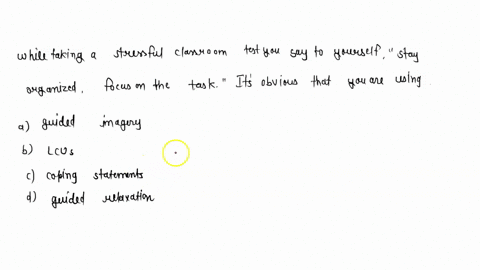 while taking a stressful classroom test you say to yourself, "stay
organized, focus on the task." It's obvious that you are using
a) guided imagery
b) LCUs
c) coping statements
d) guided relaxation